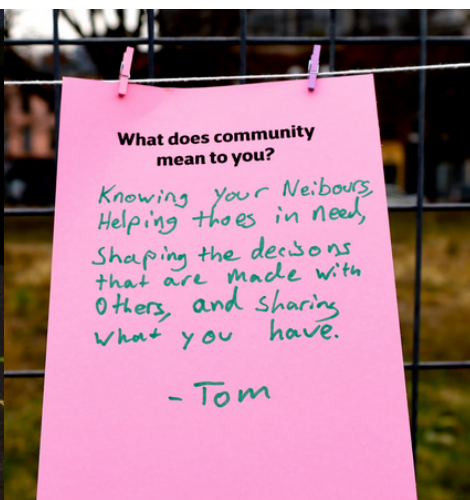 What does community
mean to you?
Knowing your Neibours,
Helping thoes in need,
Shaping the decsons
that are made with
Others, and sharing
what you have.
- Tom